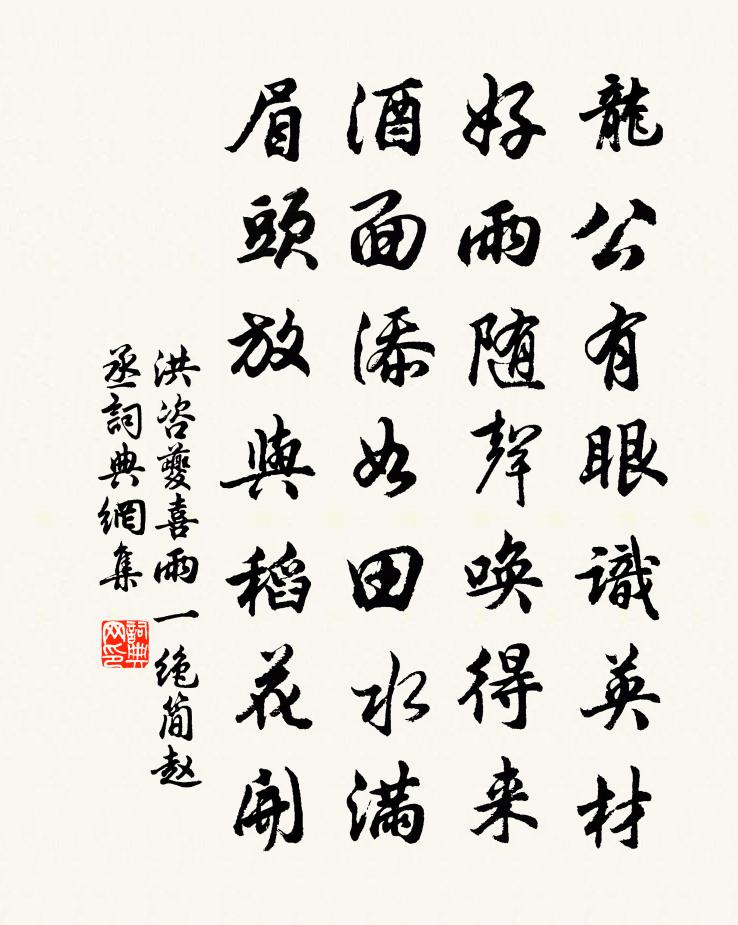 龍公有眼識英材
好雨随聲喚得来
酒面添如田水滿
眉頭放與稻花開
洪咨夔喜雨一絶簡赵
丞詞典網集
詞典网印